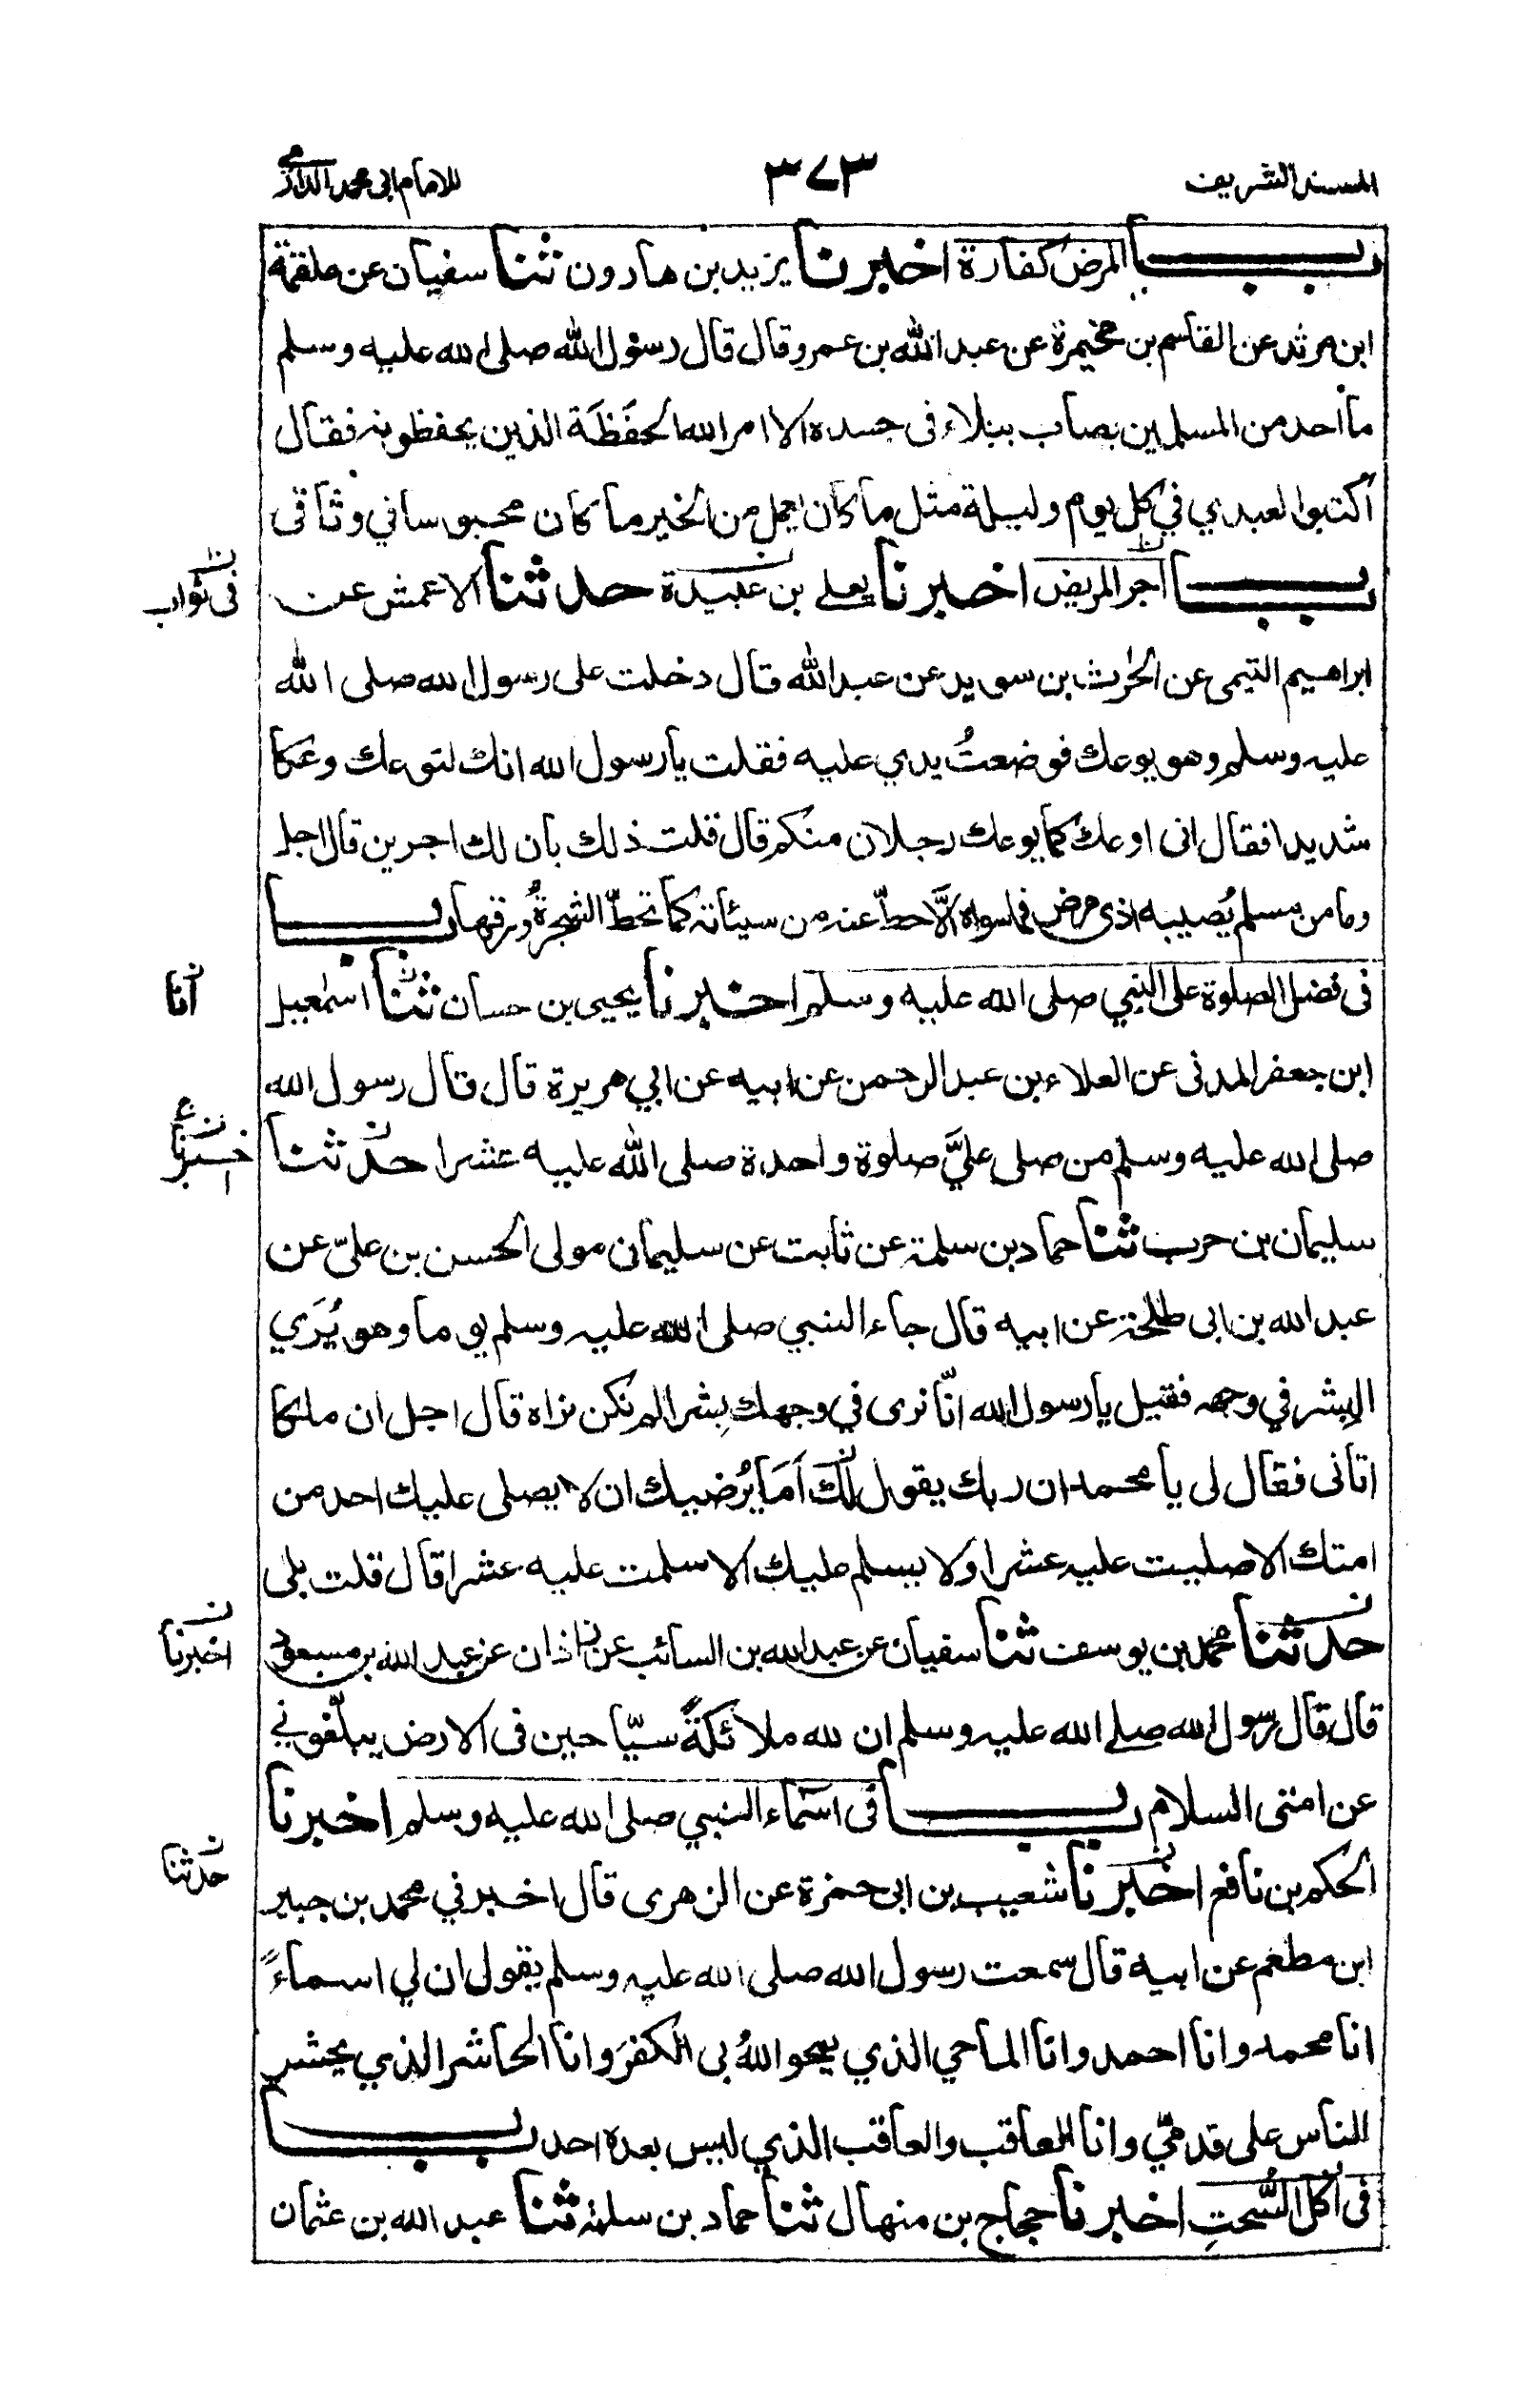 المسند الشريف ٣٧٣ للامام ابى محمد الدارمى
باب المرض كفارة اخبرنا يزيد بن هارون ثنا سفيان عن علقمة
ابن مرثد عن القاسم بن مخيمرة عن عبد الله بن عمرو قال قال رسول الله صلى الله عليه وسلم
ما احد من المسلمين يصاب ببلاء فى جسده الا امر الله الحفَظَة الذين يحفظونه فقال
اكتبوا لعبدي في كل يوم وليلة مثل ما كان يعمل من الخير ما كان محبوسا في وثاقى
باب اجر المريض اخبرنا يعلى بن عبيدة حدثنا الاعمش عن
فى ثواب
ابراهيم التيمى عن الحٰرث بن سويد عن عبد الله قال دخلت على رسول الله صلى الله
عليه وسلم وهو يوعك فوضعتُ يدي عليه فقلت يا رسول الله انك لتوعك وعكا
شديدا فقال انى اوعك كما يوعك رجلان منكم قال قلت ذلك بان لك اجرين قال اجل
وما من مسلم يُصيبه اذى مرض فما سواه الَّا حطّ عنه من سيئاته كما تحطّ الشجرةُ ورقها باب
فى فضل الصلوة على النبي صلى الله عليه وسلم اخبرنا يحيى بن حسان ثنا اسمٰعيل
انا
ابن جعفر المدنى عن العلاء بن عبد الرحمن عن ابيه عن ابي هريرة قال قال رسول الله
صلى الله عليه وسلم من صلى عليَّ صلوة واحدة صلى الله عليه عشرا حدثنا
اخبرنا
سليمان بن حرب ثنا حماد بن سلمة عن ثابت عن سليمان مولى الحسن بن علىّ عن
عبد الله بن ابى طلحة عن ابيه قال جاء النبي صلى الله عليه وسلم يوما وهو يُرَي
البِشر في وجهه فقيل يا رسول الله انّا نرى في وجهك بِشرا لم نكن نراه قال اجل ان ملكا
اتانى فقال لى يا محمد ان ربك يقول لك اَمَا يُرضيك ان لا يصلى عليك احد من
امتك الا صليت عليه عشرا ولا يسلم عليك الا سلمت عليه عشرا قال قلت بلى
حدثنا محمد بن يوسف ثنا سفيان عن عبد الله بن السائب عن زاذان عن عبد الله بن مسعود
اخبرنا
قال قال رسول الله صلے الله عليه وسلم ان لله ملائكةً سيّاحين فى الارض يبلّغوني
عن امتى السلام باب فى اسماء النبي صلى الله عليه وسلم اخبرنا
الحكم بن نافع اخبرنا شعيب بن ابى حمزة عن الزهرى قال اخبرني محمد بن جبير
حدثنا
ابن مطعم عن ابيه قال سمعت رسول الله صلى الله عليه وسلم يقول ان لي اسماءً
انا محمد وانا احمد وانا الماحي الذي يمحو اللهُ بى الكفرَ وانا الحاشر الذي يحشر
الناس على قدمىّ وانا العاقب والعاقب الذي ليس بعده احد باب
فى اكل السُّحتِ اخبرنا حجاج بن منهال ثنا حماد بن سلمة ثنا عبد الله بن عثمان